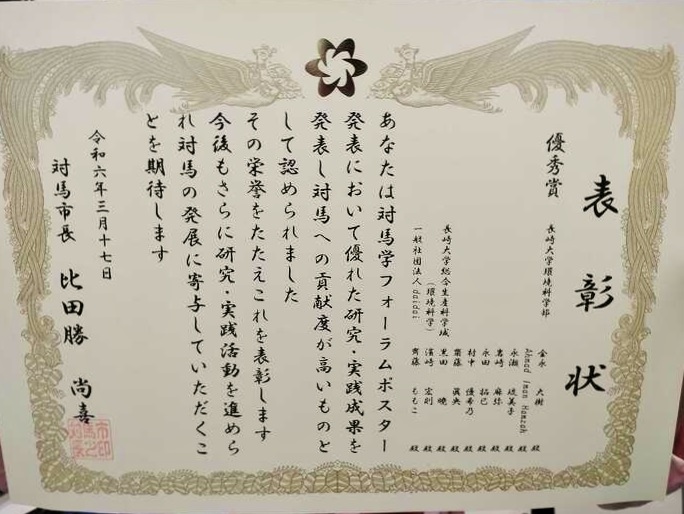 表彰状
優秀賞
長崎大学環境科学部
金永 大樹 殿
Ahmad Iman Hamzah 殿
永瀬 殿
岩崎 麻弥 殿
永田 拓巳 殿
村中 優希乃 殿
齋藤 眞央 殿
長崎大学総合生産科学域
(環境科学)
黒田 暁 殿
濱崎 宏則 殿
一般社団法人 daidai
齊藤 ももこ 殿
あなたは対馬学フォーラムポスター
発表において優れた研究・実践成果を
発表し対馬への貢献度が高いものと
して認められました
その栄誉をたたえこれを表彰します
今後もさらに研究・実践活動を進めら
れ対馬の発展に寄与していただくこ
とを期待します
令和六年三月十七日
対馬市長 比田勝 尚喜